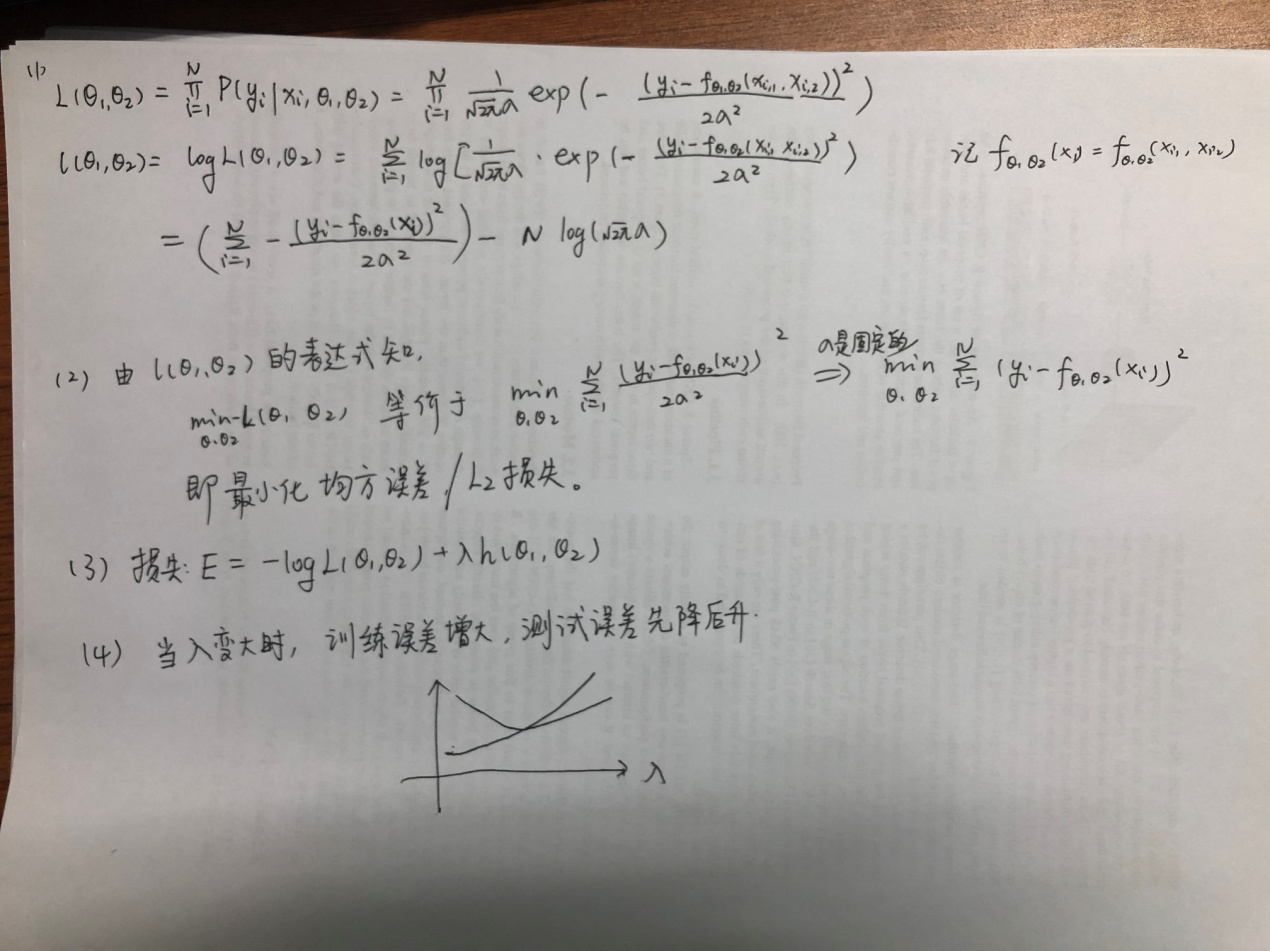 (1)
L(θ₁,θ₂) = ∏_{i=1}^{N} P(y_i|x_i, θ₁,θ₂) = ∏_{i=1}^{N} 1/(√2π a) exp(- (y_i - f_{θ₁,θ₂}(x_{i,1}, x_{i,2}))² / 2a²)
l(θ₁,θ₂) = log L(θ₁,θ₂) = ∑_{i=1}^{N} log[1/(√2π a) · exp(- (y_i - f_{θ₁,θ₂}(x_{i,1}, x_{i,2}))² / 2a²) 记 f_{θ₁,θ₂}(x_i) = f_{θ₁,θ₂}(x_{i,1}, x_{i,2})
= (∑_{i=1}^{N} - (y_i - f_{θ₁,θ₂}(x_i))² / 2a²) - N log(√2π a)
(2) 由 l(θ₁,θ₂) 的表达式知,
min_{θ₁,θ₂} -L(θ₁, θ₂) 等价于 min_{θ₁,θ₂} ∑_{i=1}^{N} (y_i - f_{θ₁,θ₂}(x_i))² / 2a² a是固定的 ⇒ min_{θ₁,θ₂} ∑_{i=1}^{N} (y_i - f_{θ₁,θ₂}(x_i))²
即最小化均方误差/L₂损失。
(3) 损失: E = -log L(θ₁,θ₂) + λh(θ₁,θ₂)
(4) 当λ变大时, 训练误差增大, 测试误差先降后升.
λ